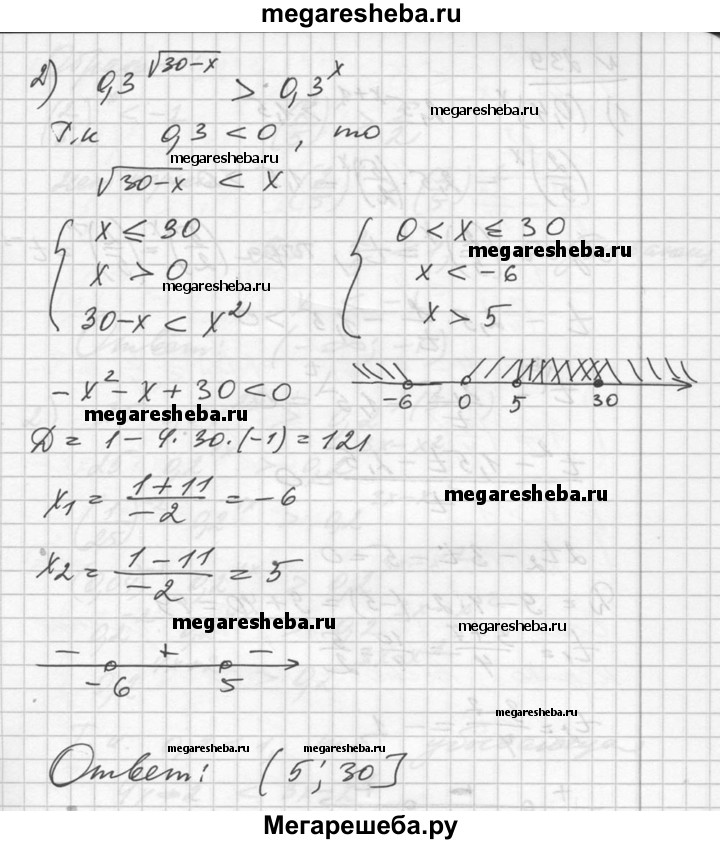 megaresheba.ru
2) 0,3^√(30-x) > 0,3^x
megaresheba.ru
Т.к 0,3 < 0, то
megaresheba.ru
√(30-x) < x
x ≤ 30
0 < x ≤ 30
megaresheba.ru
x > 0
x < -6
megaresheba.ru
30-x < x²
x > 5
-x² - x + 30 < 0
-6 0 5 30
megaresheba.ru
Д = 1 - 4·30·(-1) = 121
x₁ = (1+11)/(-2) = -6
megaresheba.ru
x₂ = (1-11)/(-2) = 5
megaresheba.ru
megaresheba.ru
- + -
-6 5
megaresheba.ru
megaresheba.ru megaresheba.ru megaresheba.ru
Ответ: (5; 30]
Мегарешеба.ру